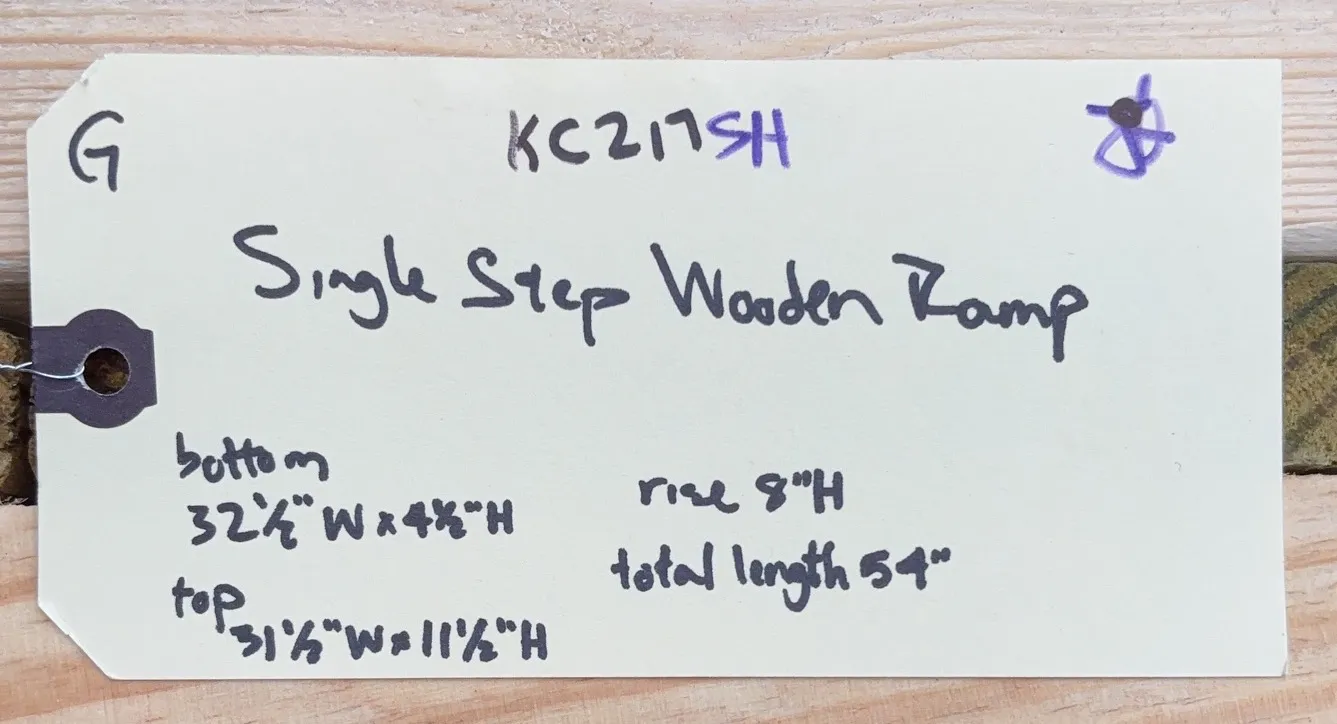 G
KC217SH
Single Step Wooden Ramp
bottom
32 1/2" W x 4 1/2" H
top
31 1/2" W x 11 1/2" H
rise 8" H
total length 54"